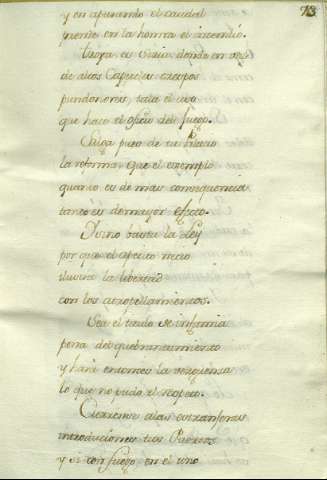 73
y en apurando el caudal
prende en la honrra el incendio.
Troya es Siria donde en vez
de altos Capueles
pundonores, tala el uso
que hace el oficio del fuego.
Salga pues de tu Palacio
la reforma, que el exemplo
quanto es de mas consequencia
tanto es de mayor efecto.
Y si no basta la Ley
por que el apetito necio
la libertad
con los atropellamientos.
Sea el titulo de infamia
pena del quebrantamiento
y hará entonces la verguenza
lo que no pudo el respeto.
Cierrense a las estranferas
introducciones tus Puertos
y si con fuego, en el uno